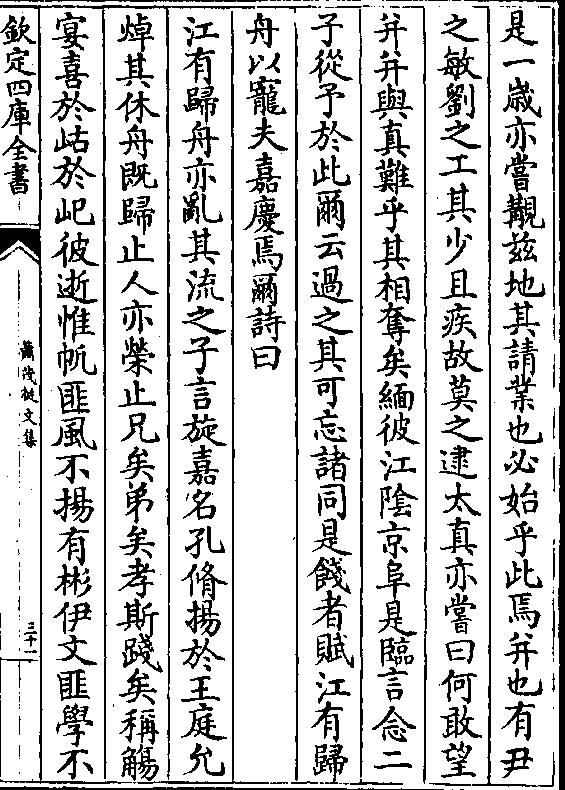 是一歳亦嘗覯兹地其請業也必始乎此焉并也有尹
之敏劉之工其少且疾故莫之逮太真亦嘗曰何敢望
并并與真難乎其相奪矣緬彼江隂京阜是臨言念二
子從予於此爾云過之其可忘諸同是餞者賦江有歸
舟以寵夫嘉慶焉爾詩曰
江有歸舟亦亂其流之子言旋嘉名孔脩揚於王庭允
焯其休舟既歸止人亦榮止兄矣弟矣孝斯踐矣稱觴
宴喜於岵於屺彼逝惟帆匪風不揚有彬伊文匪學不
欽定四庫全書
蕭茂挺文集
三十一